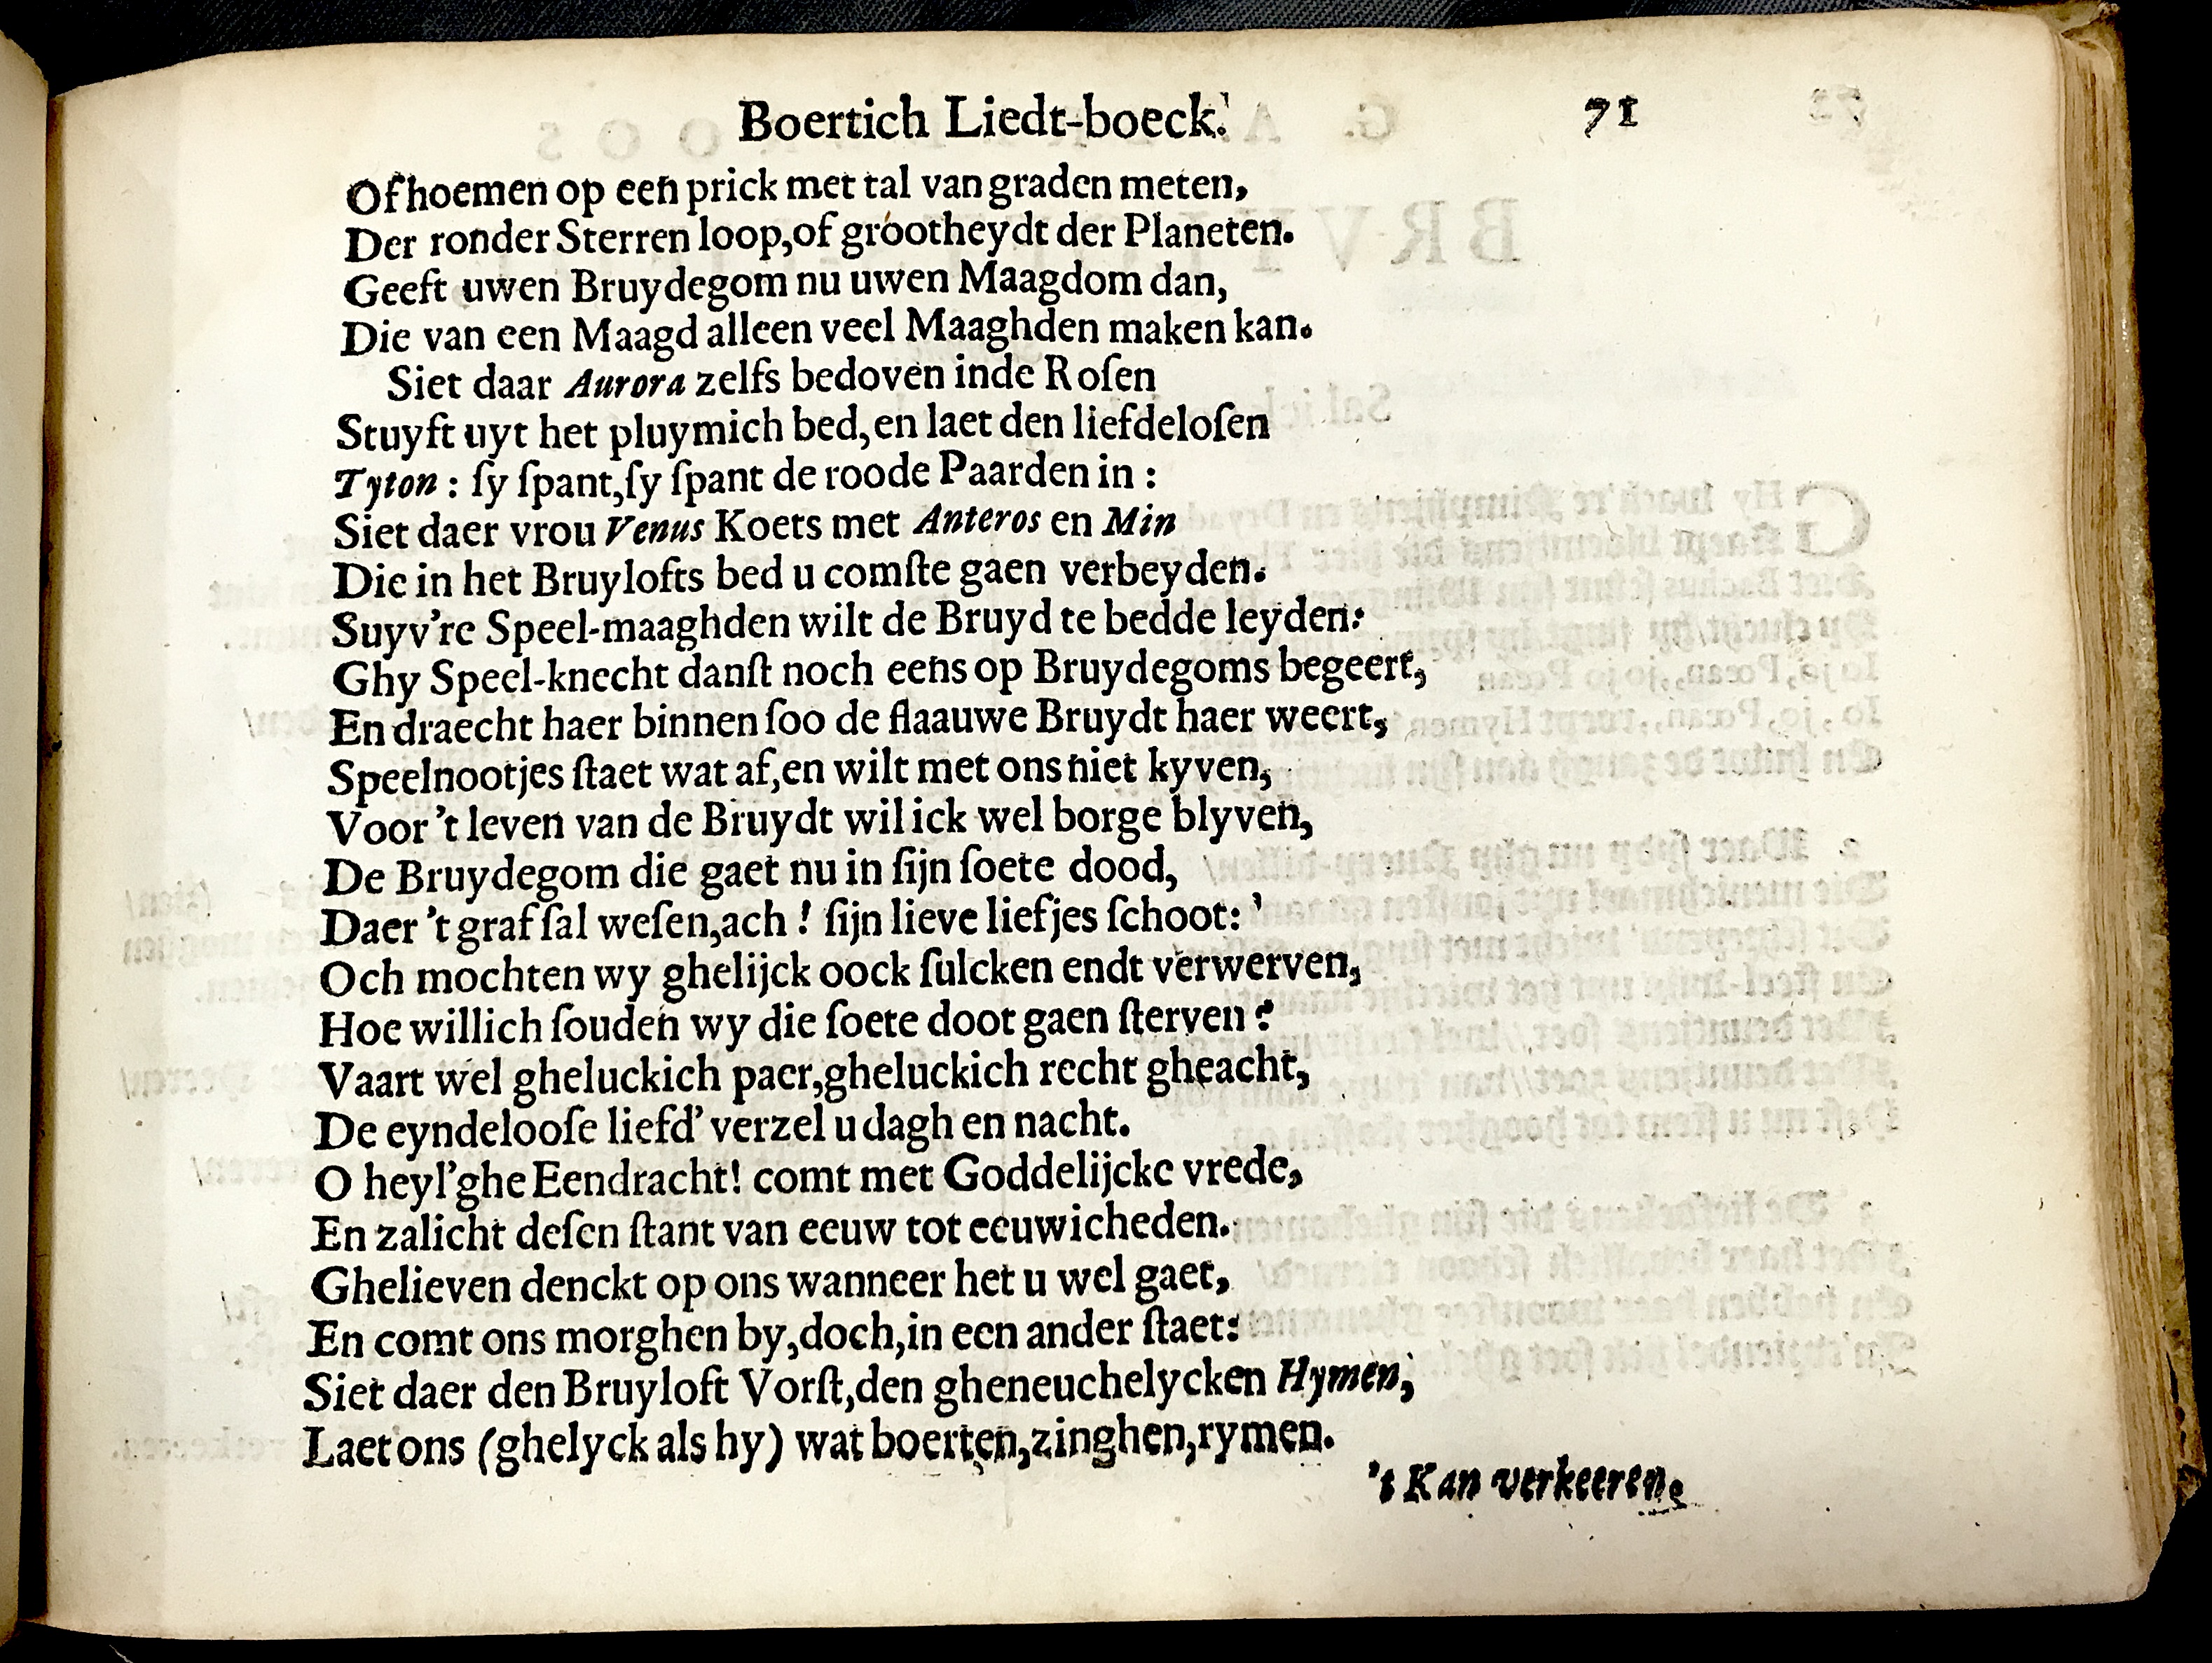 Boertich Liedt-boeck. 71
Of hoemen op een prick met tal van graden meten,
Der ronder Sterren loop, of grootheydt der Planeten.
Geeft uwen Bruydegom nu uwen Maagdom dan,
Die van een Maagd alleen veel Maaghden maken kan.
Siet daar Aurora zelfs bedoven inde Roſen
Stuyft uyt het pluymich bed, en laet den liefdeloſen
Tyton : ſy ſpant, ſy ſpant de roode Paarden in :
Siet daer vrou Venus Koets met Anteros en Min
Die in het Bruylofts bed u comſte gaen verbeyden.
Suyv're Speel-maaghden wilt de Bruyd te bedde leyden:
Ghy Speel-knecht danſt noch eens op Bruydegoms begeert,
En draecht haer binnen ſoo de flaauwe Bruydt haer weert,
Speelnootjes ſtaet wat af, en wilt met ons niet kyven,
Voor 't leven van de Bruydt wil ick wel borge blyven,
De Bruydegom die gaet nu in ſijn ſoete dood,
Daer 't graf ſal weſen, ach ! ſijn lieve liefjes ſchoot:
Och mochten wy ghelijck oock ſulcken endt verwerven,
Hoe willich ſouden wy die ſoete doot gaen ſterven ?
Vaart wel gheluckich paer, gheluckich recht gheacht,
De eyndelooſe liefd' verzel u dagh en nacht.
O heyl'ghe Eendracht! comt met Goddelijcke vrede,
En zalicht deſen ſtant van eeuw tot eeuwicheden.
Ghelieven denckt op ons wanneer het u wel gaet,
En comt ons morghen by, doch, in een ander ſtaet:
Siet daer den Bruyloft Vorſt, den gheneuchelycken Hymen,
Laet ons (ghelyck als hy) wat boerten, zinghen, rymen.
't Kan verkeeren.